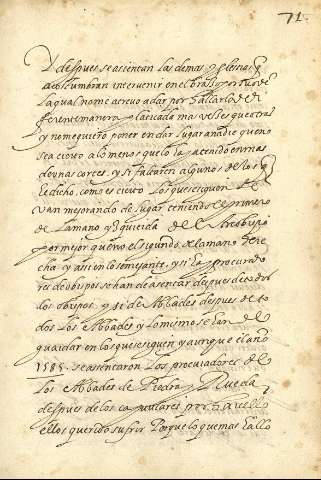 71.
Y despues se asientan las demas yglesias q
acostumbran intervenir en el braço por orden
la qual no me atrevo a dar por hallarla de di
ferente manera platicada mas veces que otras
y no me quiero poner en dar lugar a nadie que no
sea cierto a lo menos que lo ha tenido en mas
de unas cortes, y si faltaren algunos de los q
he dicho, como es cierto los que se siguen
van mejorando de lugar teniendo el primero
de la mano yzquierda del Arcobispo
por mejor que no el segundo de la mano dere
cha y assi en lo semejante, y si la procurado
res de obispos se han de asentar despues de todos
los obispos, y si de Abbades despues de to
dos los Abbades y lo mismo se ha de
guardar en los que se siguen y aunque el año
1585. se asentaron los procuradores de
los Abbades de Piedra y Rueda
despues de los capitulares por havello
ellos querido sufrir Porque lo que mas hallo